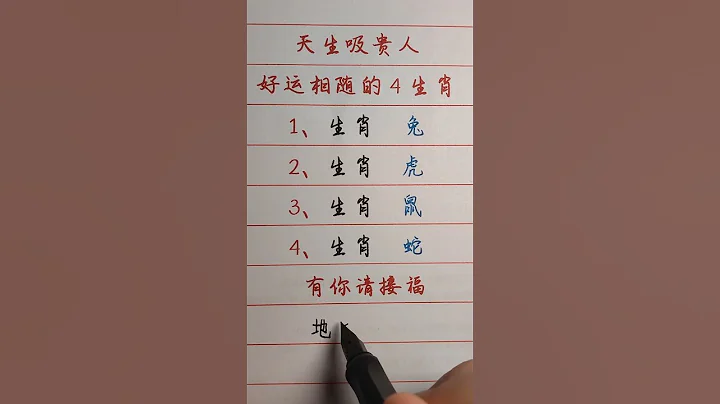 天生吸贵人
好运相随的4生肖
1、生肖 兔
2、生肖 虎
3、生肖 鼠
4、生肖 蛇
有你请接福
地